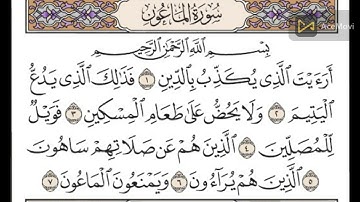 سُورَةُ المَاعُونِ
AceMovi
بِسْمِ اللَّهِ الرَّحْمَٰنِ الرَّحِيمِ
أَرَءَيْتَ الَّذِي يُكَذِّبُ بِالدِّينِ ١ فَذَٰلِكَ الَّذِي يَدُعُّ
الْيَتِيمَ ٢ وَلَا يَحُضُّ عَلَىٰ طَعَامِ الْمِسْكِينِ ٣ فَوَيْلٌ
لِّلْمُصَلِّينَ ٤ الَّذِينَ هُمْ عَن صَلَاتِهِمْ سَاهُونَ
٥ الَّذِينَ هُمْ يُرَاءُونَ ٦ وَيَمْنَعُونَ الْمَاعُونَ ٧